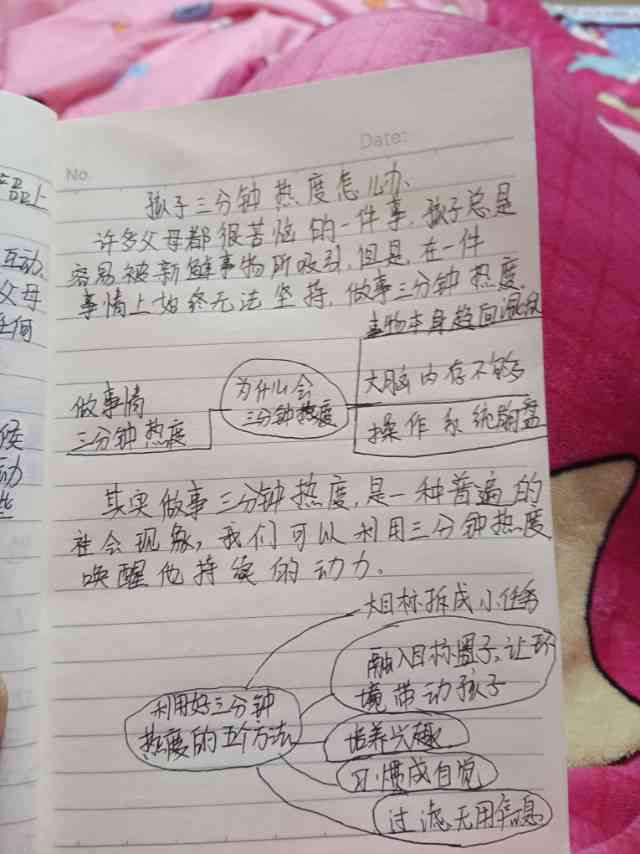 No.
Date:
孩子三分钟热度怎么办、
许多父母都很苦恼的一件事,孩子总是
容易被新鲜事物所吸引,但是,在一件
事情上始终无法坚持,做事三分钟热度.
事物本身趋向混乱
大脑内存不够
操作系统崩盘
为什么会
三分钟热度
做事情
三分钟热度
其实做事三分钟热度,是一种普遍的
社会现象,我们可以利用三分钟热度
唤醒他持续的动力.
大目标拆成小任务
融入目标圈子,让环
境带动孩子
培养兴趣
习惯成自觉
过滤无用信息
利用好三分钟
热度的五个方法
互动.
父母
任何
候
动
些